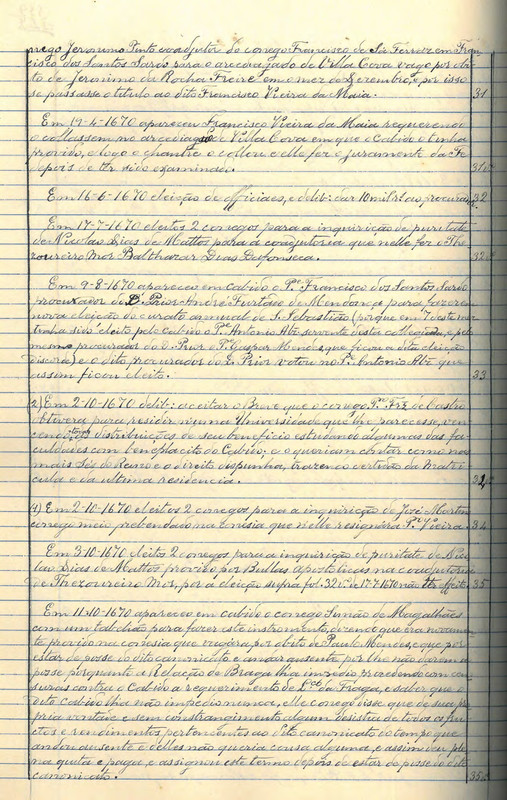 nego Jeronimo Pinto coadjutor do conego Francisco de Sá Ferraz em Fran-
cisco dos Santos Sardo para o arcediagado de Villa Cova vago por obi-
to de Jeronimo da Rocha Freire em o mez de Dezembro, e por isso
se passasse o titulo ao dito Francisco Vieira da Maia. 31
Em 19-4-1670 apareceu Francisco Vieira da Maia requerendo
o collassem no arcediagado de Villa Cova em que o Cabido o tinha
provido, e logo o chantre o collou e elle fez o juramento da Fe
depois de ter sido examinado. 31v.º
Em 16-6-1670 eleição de officiaes, e delib: dar 10 mil rs ao procurador. 32
Em 17-7-1670 eleitos 2 conegos para a inquirição de puritate
de Nicolau Dias de Mattos para a coadjutoria que nelle fez o The-
zoureiro Mor Balthazar Dias Dafonseca. 32v.º
Em 9-8-1670 apareceu em Cabido o P.e Francisco dos Santos Sardo
procurador do D. Prior André Furtado de Mendonça para fazerem
nova eleição do curato annual de S. Sebastião (porque em 7 deste mez
tinha sido eleito pelo cabido o P.e Antonio Abz servente desta collegiada, e pelo
mesmo procurador do D. Prior o P.e Gaspar Mendes, que ficou a dita eleição
discorde) e o dito procurador do D. Prior votou no P.e Antonio Abz que
assim ficou eleito. 33
(2) Em 2-10-1670 delib: aceitar o Breve que o conego P.o Frz de Castro
obtivera para residir n'uma Universidade que lhe parecesse, ven-
cendo as distribuições do seu beneficio estudando algumas das fa-
culdades com beneplacito do Cabido, e o queriam contar como nas
mais Sés do Reino e o direito dispunha, trazendo certidão da Matri-
cula e da ultima residencia. 34v.º
(1) Em 2-10-1670 eleitos 2 conegos para a inquirição de José Martins
conego meio prebendado na conesia que nelle resignára P.o Vieira. 34
Em 3-10-1670 eleitos 2 conegos para a inquirição de puritate de Nico-
lau Dias de Mattos provido por Bullas apostolicas na coadjutoria
de Thezoureiro Mor, por á eleição supra fol. 32 v.º de 17-7-1670 não ter effeito. 35
Em 11-10-1670 apareceu em cabido o conego Simão de Magalhães
com um tabelião para fazer este instrumento, dizendo que era novamen-
te provido na conesia que vagára por obito de Paulo Mendes, e que por
estar de posse do dito canonicato e andar ausente por lhe não darem a
posse porquanto a Relação de Braga lha impedio procedendo com cen-
suras contra o Cabido a requerimento de da Fraga, e saber que o
dito cabido lha não impedio nunca, elle conego disse que de sua pro-
pria vontade e sem constrangimento algum desistia de todos os fru-
ctos e rendimentos pertencentes ao dito canonicato do tempo que
andou ausente e delles não queria cousa alguma, e assim deu ple-
na quita e paga, e assignou este termo depois de estar de posse do dito
canonicato. 35v.º